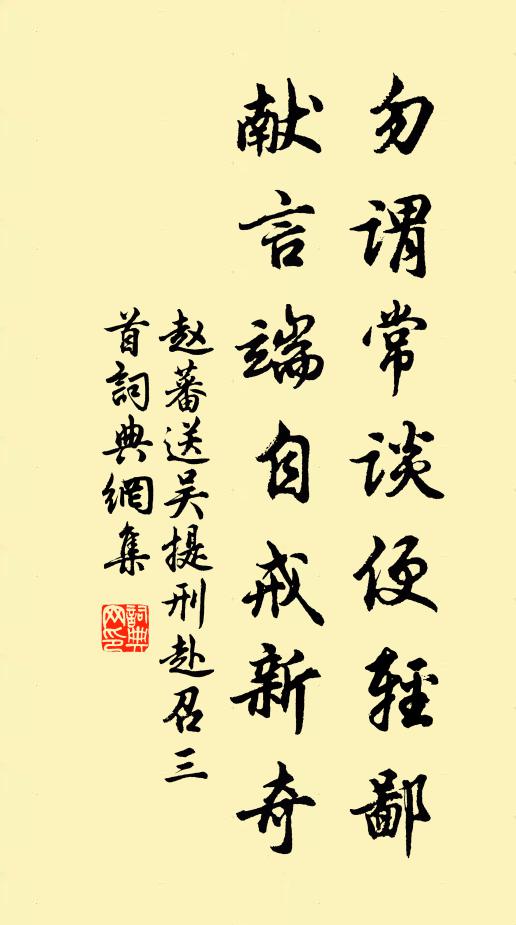 勿谓常谈便轻鄙
献言端自戒新奇
赵蕃送吴提刑赴召三
首詞典網集
詞典
网印